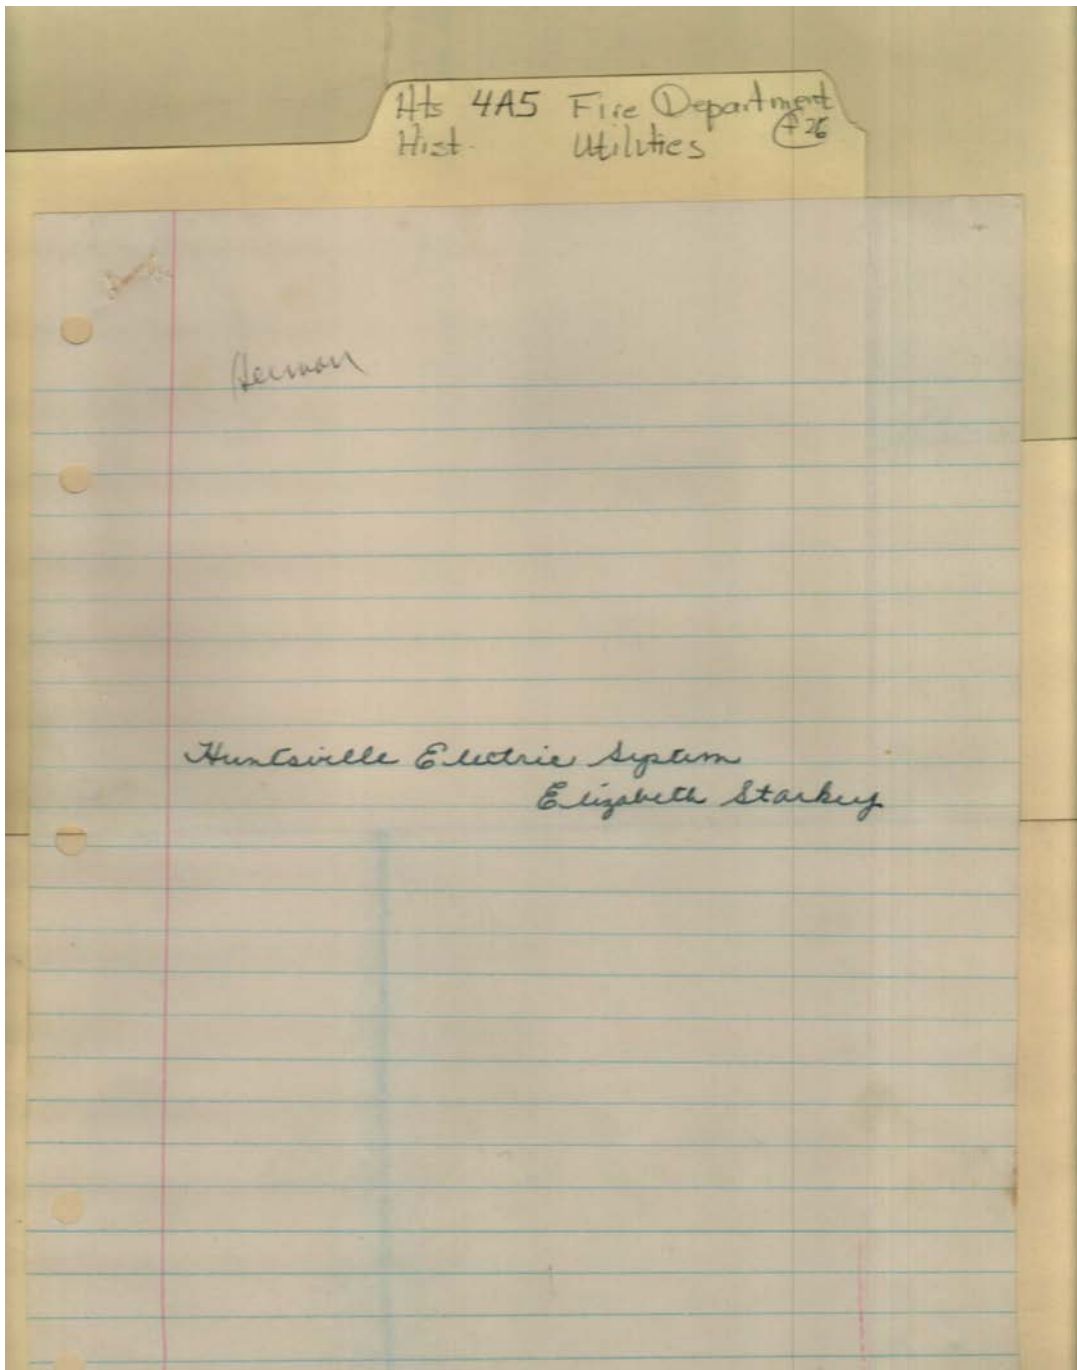 Hts 4A5 Fire Department
Hist. Utilities + 26
Herman
Huntsville Electric System
Elizabeth Starkey